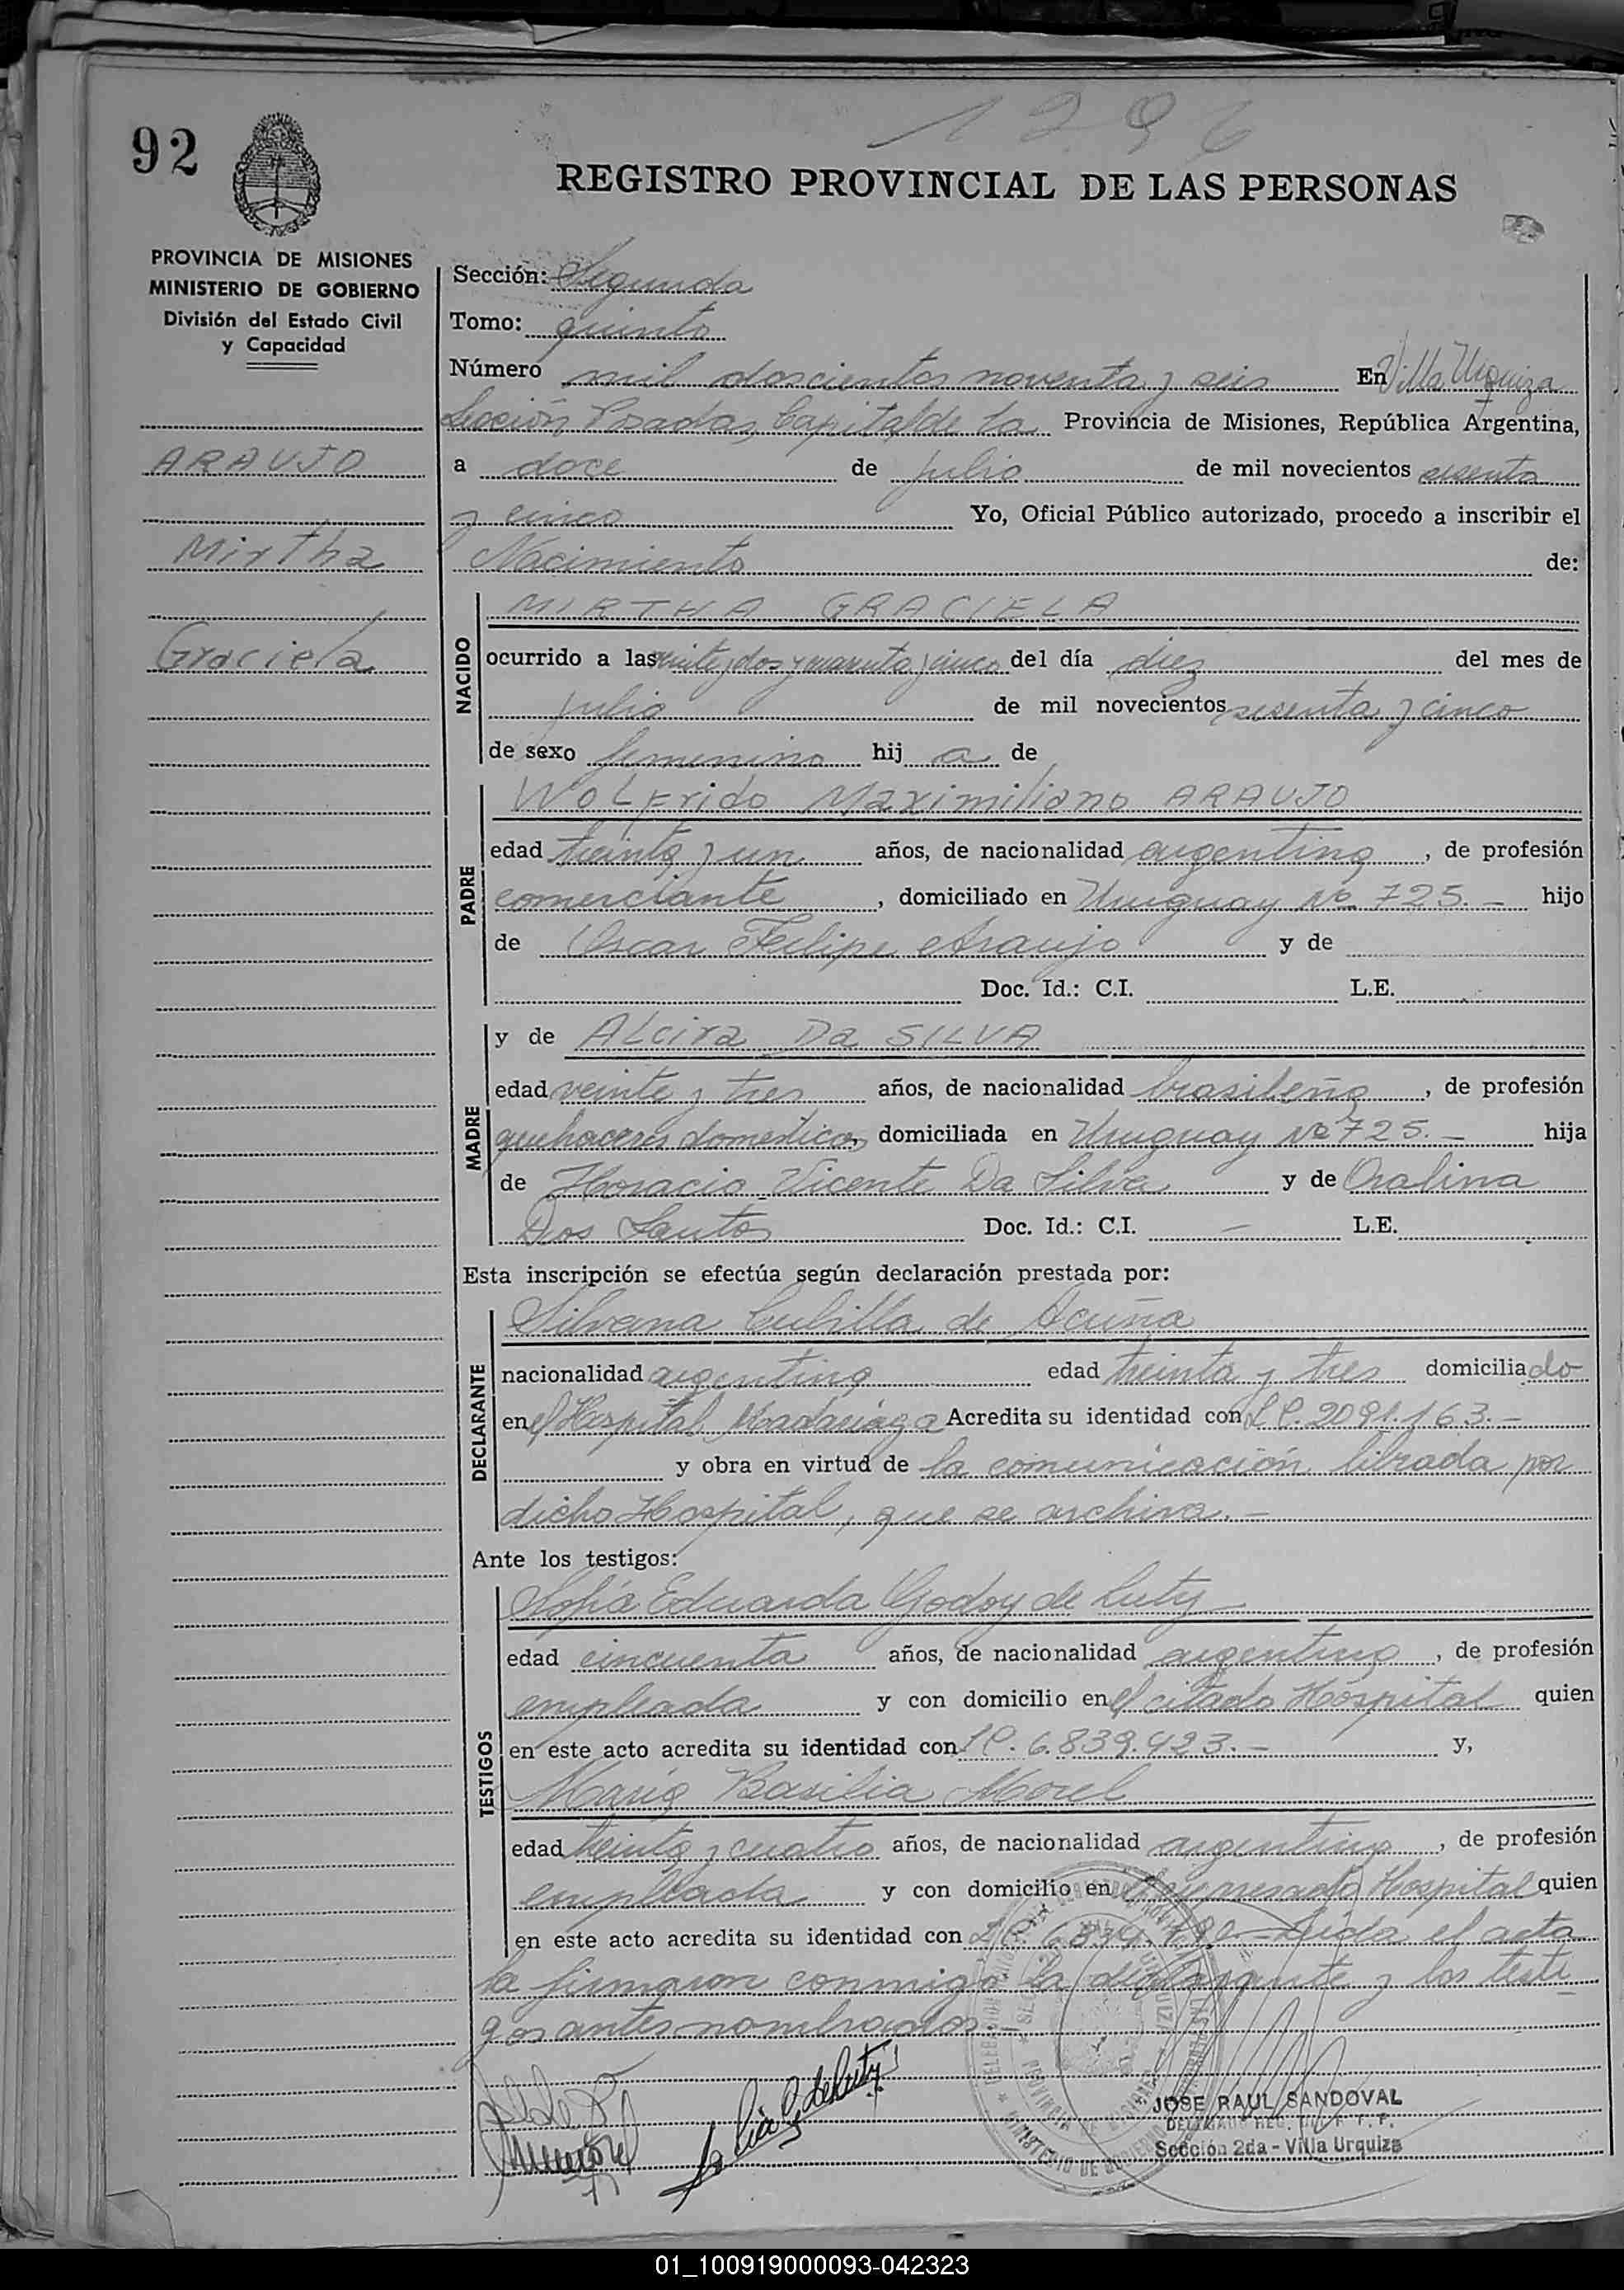 1296
92
REGISTRO PROVINCIAL DE LAS PERSONAS
PROVINCIA DE MISIONES
MINISTERIO DE GOBIERNO
División del Estado Civil
y Capacidad
ARAUJO
Mirtha
Graciela
Sección: Segunda
Tomo: quinto
Número mil doscientos noventa y seis En Villa Urquiza
Sección Posadas, Capital de la Provincia de Misiones, República Argentina,
a doce de julio de mil novecientos sesenta
y cinco Yo, Oficial Público autorizado, procedo a inscribir el
Nacimiento de:
NACIDO
MIRTHA GRACIELA
ocurrido a las veinte y dos y cuarenta y cinco del día diez del mes de
julio de mil novecientos sesenta y cinco
de sexo femenino hij a de
PADRE
WOLFrido Maximiliano ARAUJO
edad treinta y un años, de nacionalidad argentina, de profesión
comerciante, domiciliado en Uruguay No 725.- hijo
de Oscar Felipe Araujo y de
Doc. Id.: C.I. L.E.
MADRE
y de ALcira Da SILVA
edad veinte y tres años, de nacionalidad brasileña, de profesión
quehaceres domesticos, domiciliada en Uruguay No 725.- hija
de Horacio Vicente Da Silva y de Oralina
Dos Santos Doc. Id.: C.I. - L.E.
Esta inscripción se efectúa según declaración prestada por:
DECLARANTE
Silvana Cubilla de Acuña
nacionalidad argentina edad treinta y tres domiciliado
en el Hospital Madariaga Acredita su identidad con L C. 2091.163.-
y obra en virtud de la comunicación librada por
dicho Hospital, que se archiva.-
Ante los testigos:
TESTIGOS
Sofía Eduarda Godoy de Luty
edad cincuenta años, de nacionalidad argentina, de profesión
empleada y con domicilio en el citado Hospital quien
en este acto acredita su identidad con L C. 6.839.423.- y,
María Basilia Morel
edad treinta y cuatro años, de nacionalidad argentina, de profesión
empleada y con domicilio en Hospital quien
en este acto acredita su identidad con Leida el acta
la firmaron conmigo la declarante y los testi
gos antes nombrados.-
JOSE RAUL SANDOVAL
Sección 2da - Villa Urquiza
01_100919000093-042323